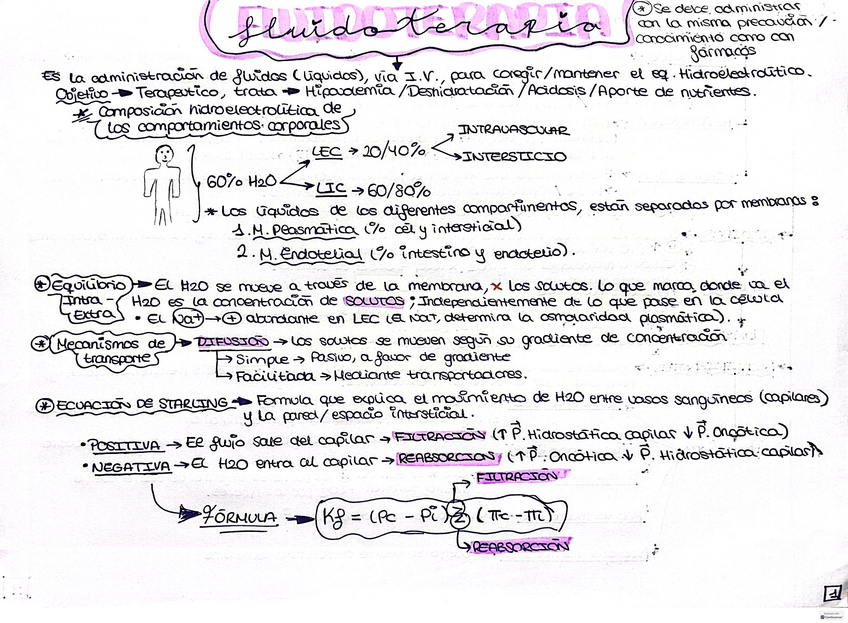 FLUIDOTERAPIA
fluidoterapia
* Se debe administrar
con la misma precaución /
conocimiento como con
fármacos
Es la administración de fluidos (líquidos), vía I.V., para coregir/mantener el eq. Hidroelectrolítico.
Objetivo → Terapeutico, trata → Hipovolemia / Deshidratación / Acidosis / Aporte de nutrientes.
* Composición hidroelectrolítica de
los comportamientos corporales
60% H2O
LEC → 20/40%
INTRAVASCULAR
INTERSTICIO
LIC → 60/80%
* Los líquidos de los diferentes compartimentos, están separados por membranas:
1. M. Plasmática (% cél y intersticial)
2. M. Endotelial (% intestino y endotelio).
* Equilibrio Intra-Extra → El H2O se mueve a través de la membrana, x los solutos. lo que marca, donde va el
H2O es la concentración de SOLUTOS; Independientemente de lo que pase en la célula
• El Na+ → + abundante en LEC (el Na+, determina la osmolaridad plasmática).
* Mecanismos de transporte → DIFUSIÓN → los solutos se mueven según su gradiente de concentración
→ Simple → Pasivo, a favor de gradiente
→ Facilitada → Mediante transportadores.
* ECUACIÓN DE STARLING → Formula que explica el movimiento de H2O entre vasos sanguíneos (capilares)
y la pared/espacio intersticial.
• POSITIVA → El flujo sale del capilar → FILTRACIÓN (↑ P. Hidrostática capilar ↓ P. Oncótica)
• NEGATIVA → El H2O entra al capilar → REABSORCIÓN (↑ P. Oncótica ↓ P. Hidrostática capilar)
FILTRACIÓN
FÓRMULA → Kf = (Pc - Pi) (πc - πi)
REABSORCIÓN
1